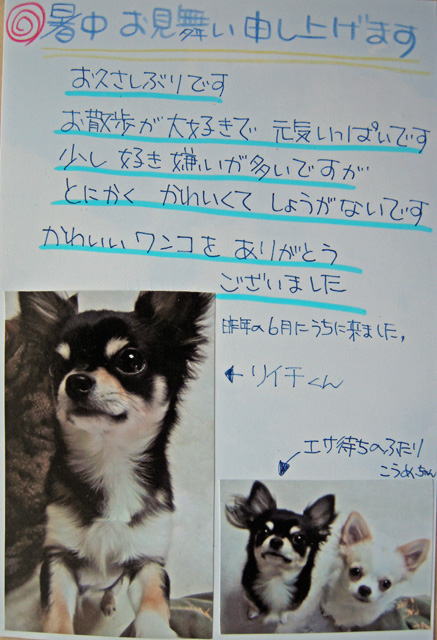 暑中お見舞い申し上げます
お久さしぶりです
お散歩が大好きで 元気いっぱいです
少し好き嫌いが多いですが
とにかく かわいくて しょうがないです
かわいい ワンコを ありがとう
ございました
昨年の6月にうちに来ました。
←リイチくん
エサ待ちのふたり
こうめちゃん